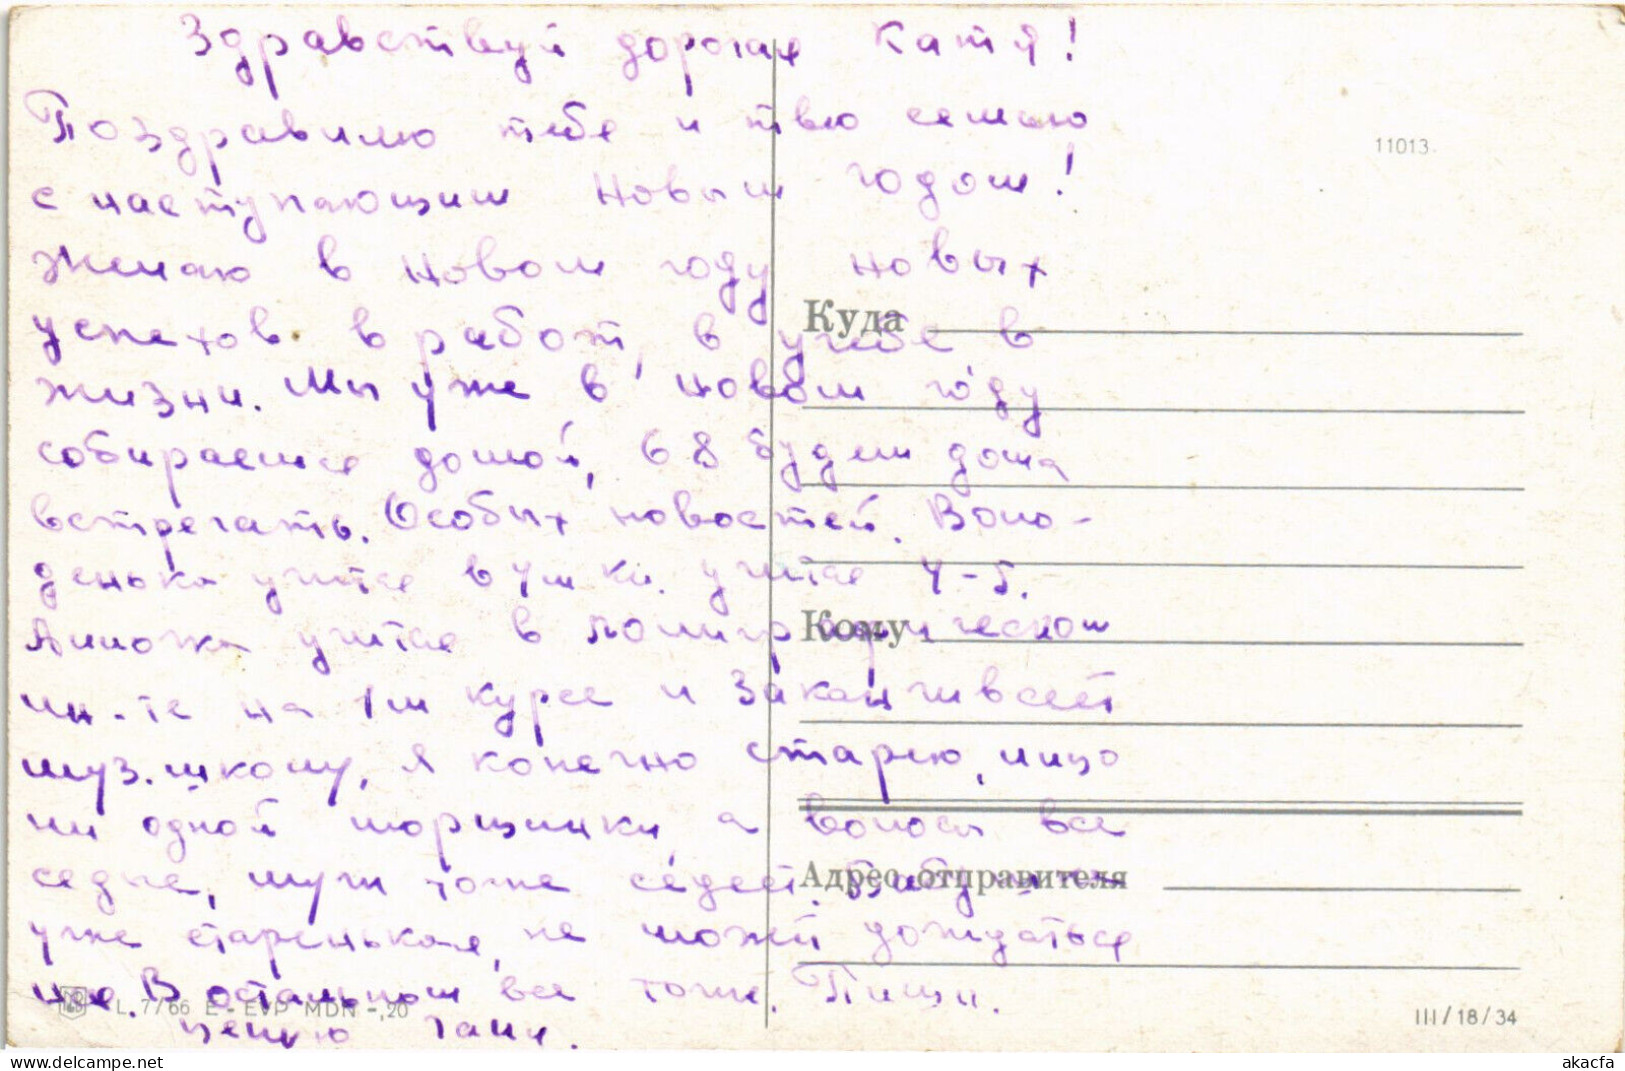 Здравствуй дорогая Катя!
Поздравляю тебя и твою семью
с наступающим Новым годом!
Желаю в новом году новых
успехов в работ, в учебе, в
жизни. Мы уже в новом году
собираемся домой, 68 будем дома
встречать. Особых новостей. Воло-
денька учится в ушки. учится 4-5.
Анночка учится в полиграфическом
ин-те на 1м курсе и заканчивает
муз.школу, я конечно старею, лицо
ни одной морщинки, а волосы все
седые, муж тоже седеет.
уже старенькая, не может дождаться
нас. В остальном все тоже. Пиши.
целую Галя.
11013
Куда
Кому
Адрес отправителя
L. 7/66 E - EVP MDN -,20
III/18/34
akacfa